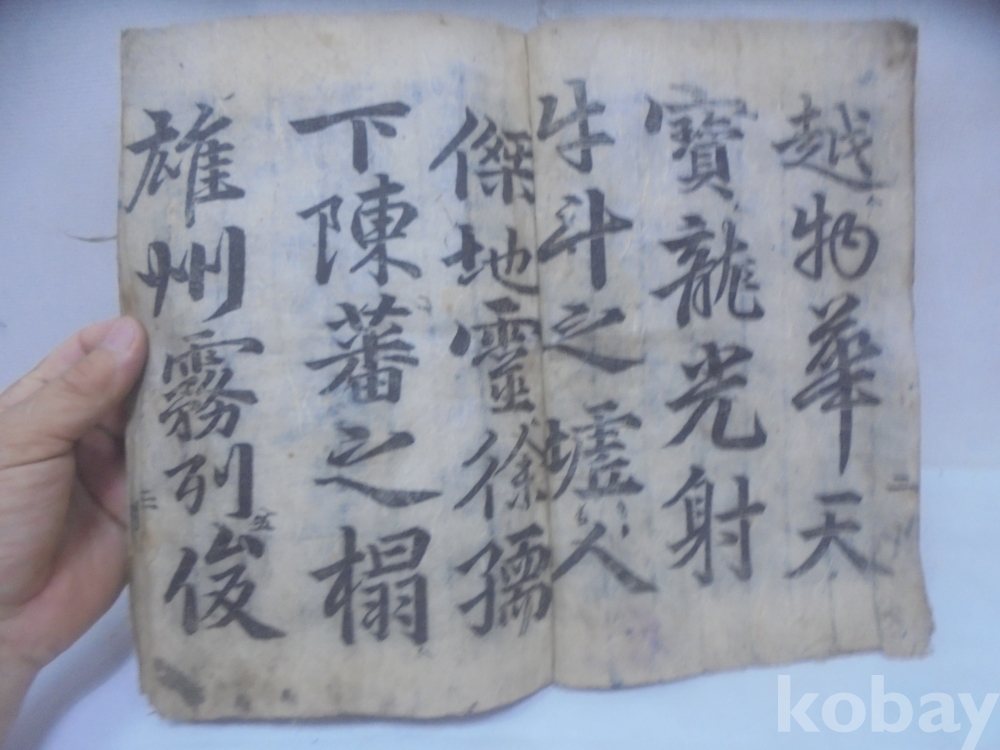 越物華天
寶龍光射
牛斗之墟人
傑地靈徐孺
下陳蕃之榻
雄州霧列俊
二
kobay